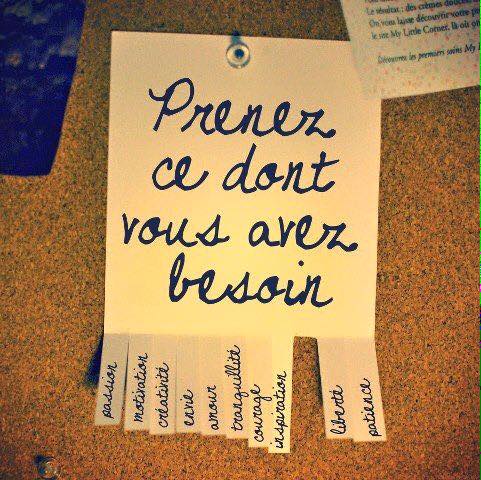 Le résultat : des crèmes
On vous laisse découvrir votre
le site My Little Corner. Là où
Découvrez les premiers soins My
Prenez
ce dont
vous avez
besoin
passion
motivation
créativité
envie
amour
tranquillité
courage
inspiration
liberté
patience